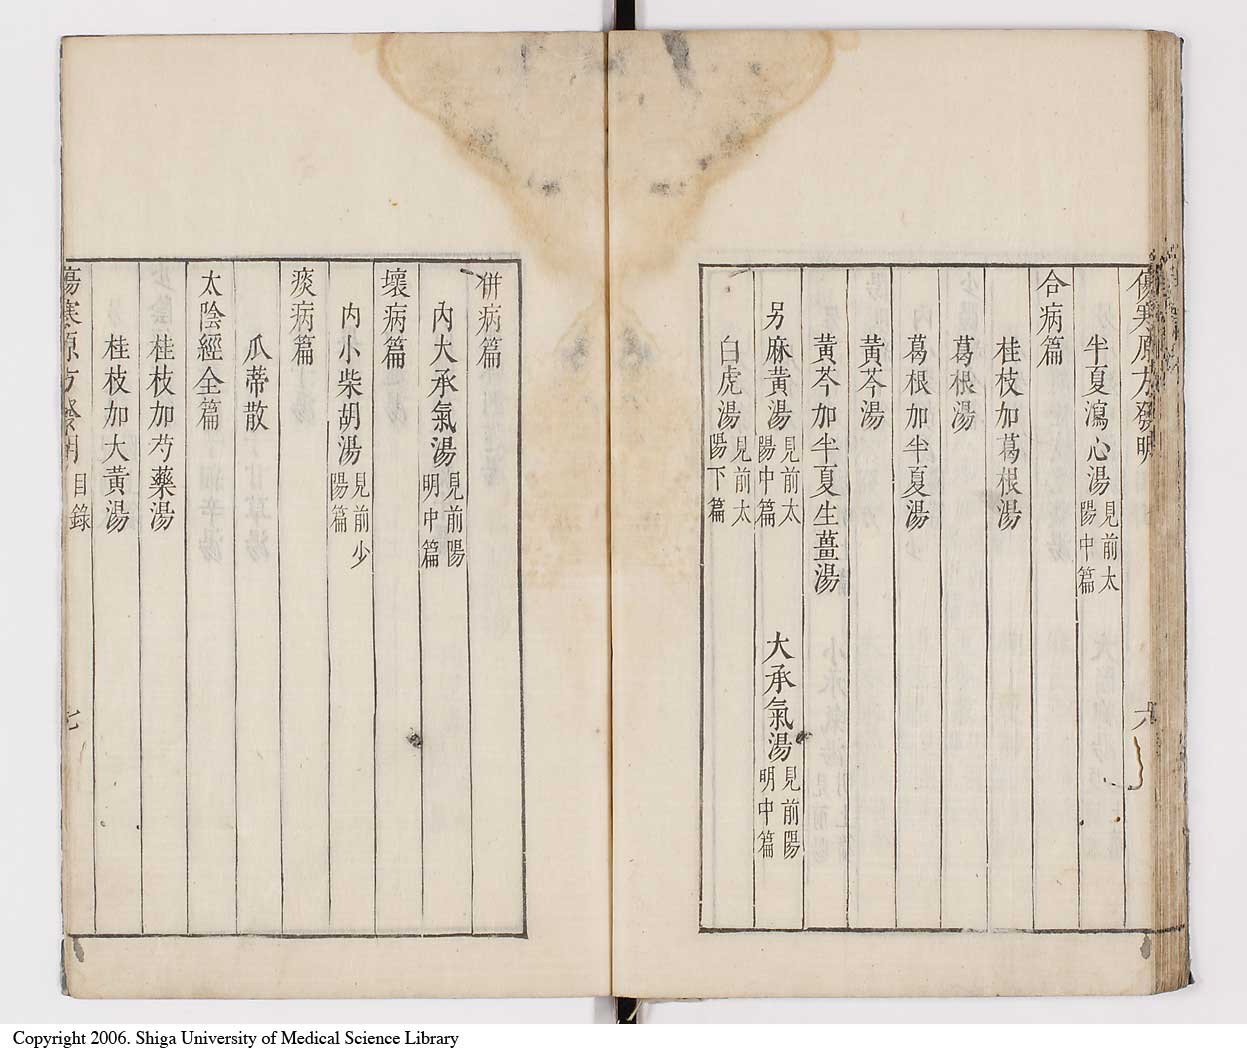 傷寒原方發明 六
半夏瀉心湯 見前太陽中篇
合病篇
桂枝加葛根湯
葛根湯
葛根加半夏湯
黃芩湯
黃芩加半夏生薑湯
另麻黃湯 見前太陽中篇 大承氣湯 見前陽明中篇
白虎湯 見前太陽下篇
併病篇
內大承氣湯 見前陽明中篇
壞病篇
內小柴胡湯 見前少陽篇
痰病篇
瓜蒂散
太陰經全篇
桂枝加芍藥湯
桂枝加大黃湯
傷寒原方發明 目錄 七
Copyright 2006. Shiga University of Medical Science Library